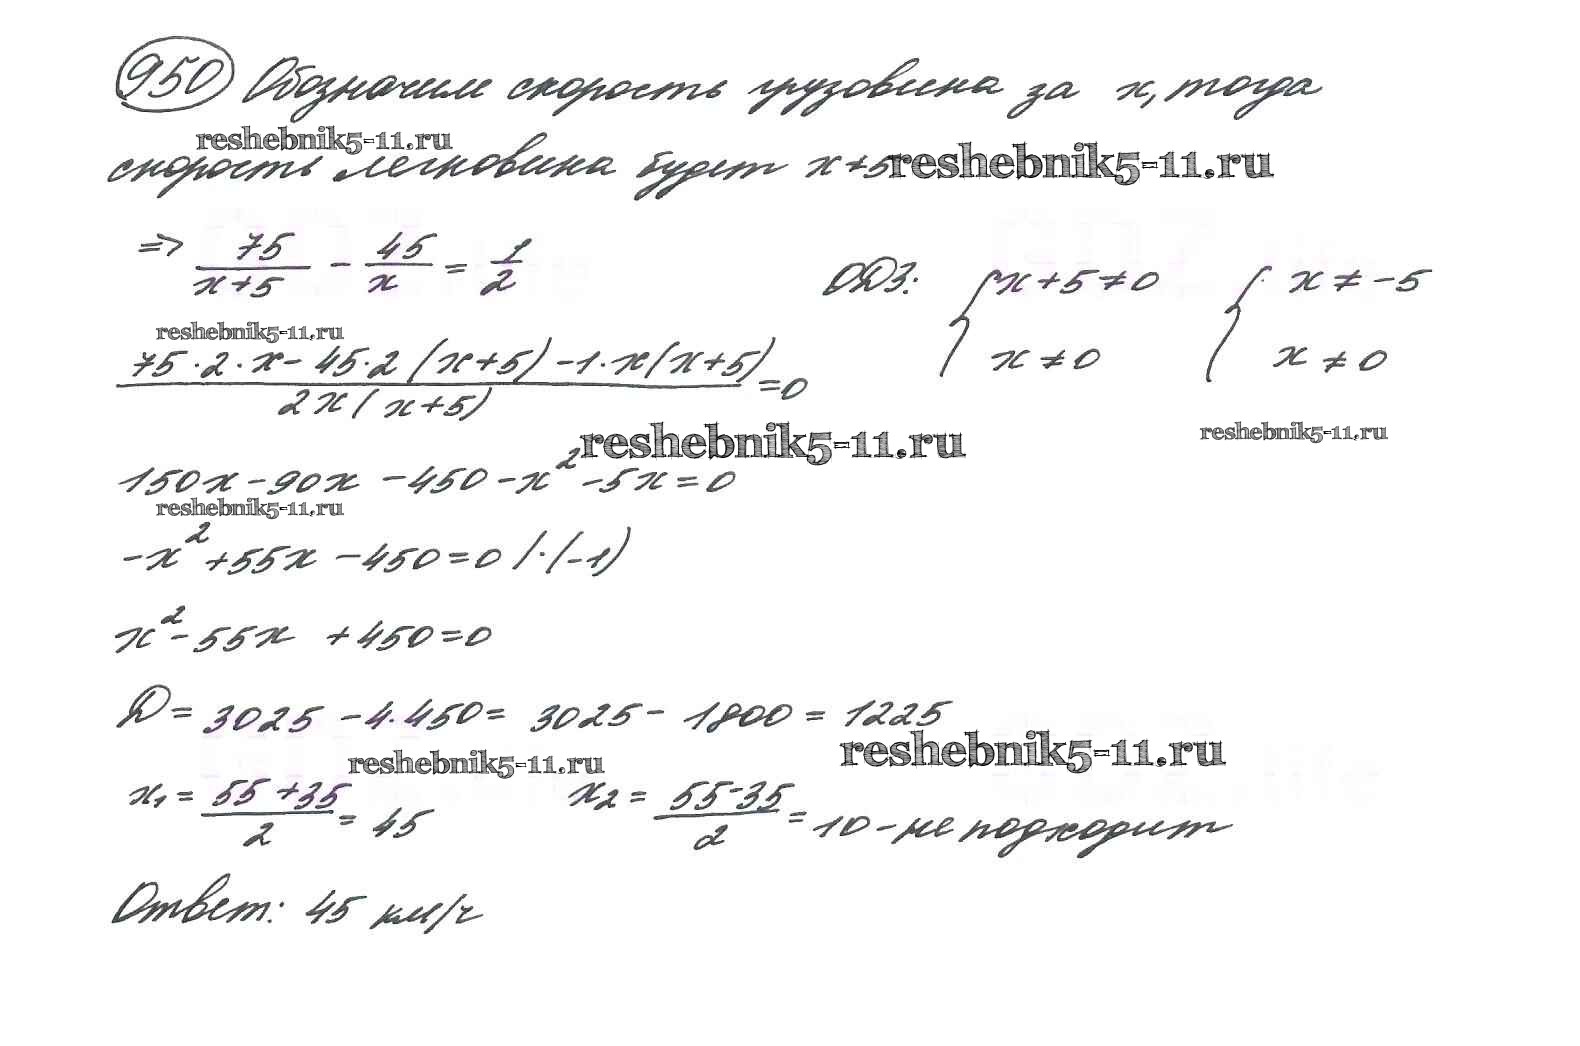 950 Обозначим скорость грузовика за x, тогда
reshebnik5-11.ru
скорость легковика будет x+5 reshebnik5-11.ru
=> 75/(x+5) - 45/x = 1/2 ОДЗ: { x+5≠0 { x≠-5
x≠0 x≠0
reshebnik5-11.ru
(75·2·x-45·2(x+5)-1·x(x+5))/(2x(x+5)) =0
reshebnik5-11.ru
reshebnik5-11.ru
150x-90x-450-x²-5x=0
reshebnik5-11.ru
-x²+55x-450=0 /·(-1)
x²-55x+450=0
D= 3025-4·450= 3025-1800=1225
reshebnik5-11.ru reshebnik5-11.ru
x₁= (55+35)/2 = 45 x₂= (55-35)/2 = 10-не подходит
Ответ: 45 км/ч